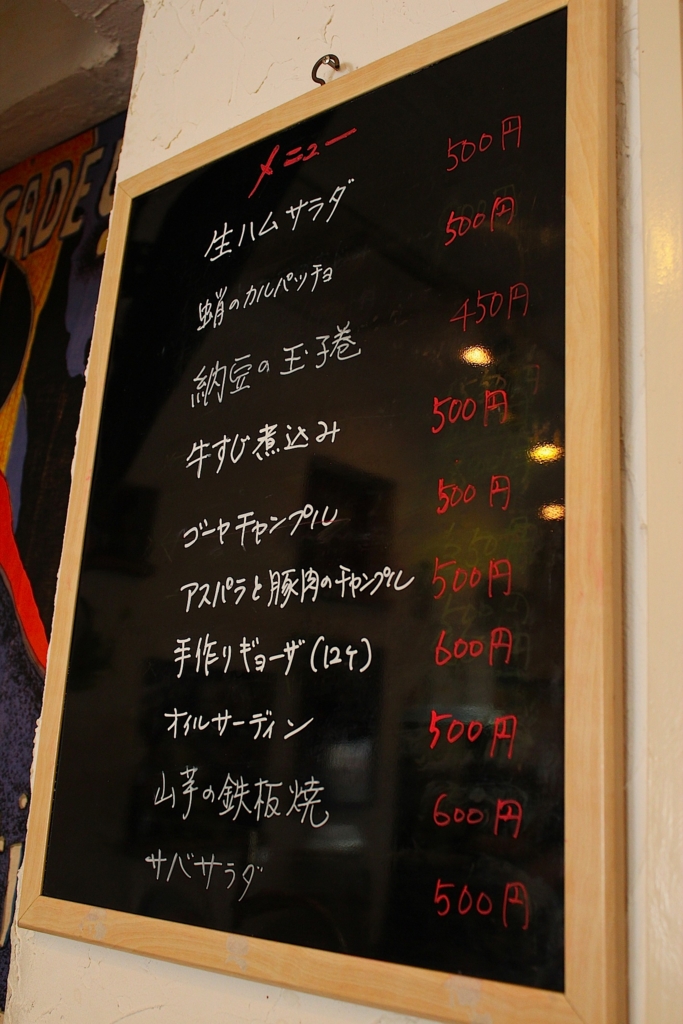 SADE
メニュー
生ハムサラダ 500円
蛸のカルパッチョ 500円
納豆の玉子巻 450円
牛すじ煮込み 500円
ゴーヤチャンプル 500円
アスパラと豚肉のチャンプル 500円
手作りギョーザ(12ケ) 600円
オイルサーディン 500円
山芋の鉄板焼 600円
サバサラダ 500円